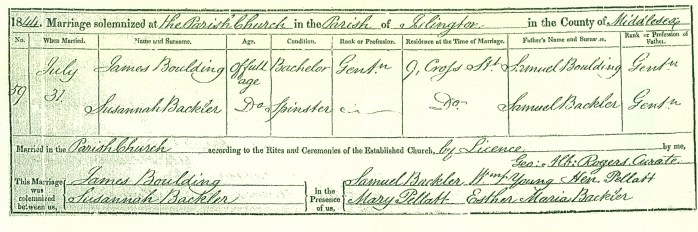 1844. Marriage solemnized at the Parish Church in the Parish of Islington in the County of Middlesex
No. When Married. Name and Surname. Age. Condition. Rank or Profession. Residence at the Time of Marriage. Father's Name and Surname. Rank or Profession of Father.
59 July 31. James Boulding of full age Bachelor Gentn 9, Cross St Samuel Boulding Gentn
Susannah Backler Do Spinster Do Samuel Backler Gentn
Married in the Parish Church according to the Rites and Ceremonies of the Established Church, by Licence by me,
Geo: Rogers Curate
This Marriage was solemnized between us, James Boulding Susannah Backler in the Presence of us, Samuel Backler Wm Young Hen. Pellatt
Mary Pellatt Esther Maria Backler